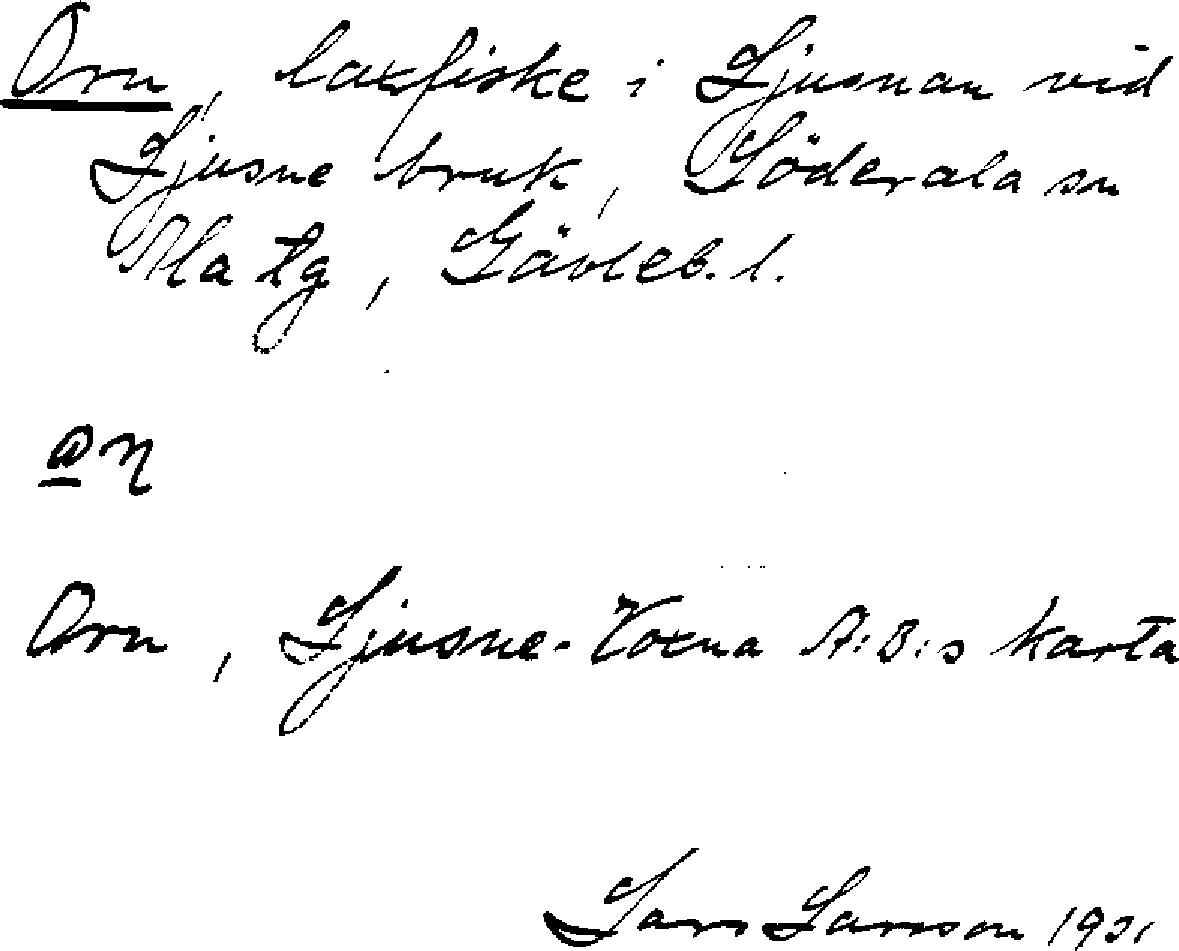 Orn, laxfiske i Ljusnan vid
Ljusne bruk, Söderala sn
Ala tg, Gävleb. l.
Orn, Ljusne-Voxna A:B:s karta
Lars Larsson